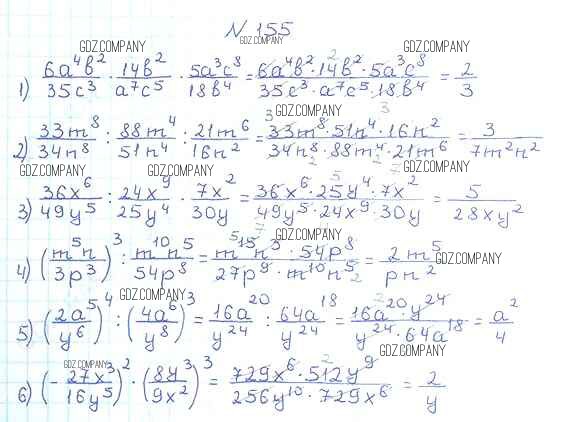 N 155
GDZ.COMPANY GDZ.COMPANY GDZ.COMPANY
1) 6a⁴b²/35c³ · 14b²/a⁷c⁵ · 5a³c⁸/18b⁴ = 6a⁴b² · 14b² · 5a³c⁸/35c³ · a⁷c⁵ · 18b⁴ = 2/3
GDZ.COMPANY
2) 33m⁸/34n⁸ : 88m⁴/51n⁴ · 21m⁶/16n² = 33m⁸ · 51n⁴ · 16n²/34n⁸ · 88m⁴ · 21m⁶ = 3/7m²n²
GDZ.COMPANY GDZ.COMPANY GDZ.COMPANY
3) 36x⁶/49y⁵ : 24x⁹/25y⁴ · 7x²/30y = 36x⁶ · 25y⁴ · 7x²/49y⁵ · 24x⁹ · 30y = 5/28xy²
GDZ.COMPANY
4) (m⁵n/3p³)³ : m¹⁰n⁵/54p⁸ = m¹⁵n³ · 54p⁸/27p⁹ · m¹⁰n⁵ = 2m⁵/pn²
GDZ.COMPANY GDZ.COMPANY
5) (2a⁵/y⁶)⁴ : (4a⁶/y⁸)³ = 16a²⁰/y²⁴ : 64a¹⁸/y²⁴ = 16a²⁰ · y²⁴/y²⁴ · 64a¹⁸ = a²/4
GDZ.COMPANY GDZ.COMPANY
6) (-27x³/16y⁵)² · (8y³/9x²)³ = 729x⁶ · 512y⁹/256y¹⁰ · 729x⁶ = 2/y